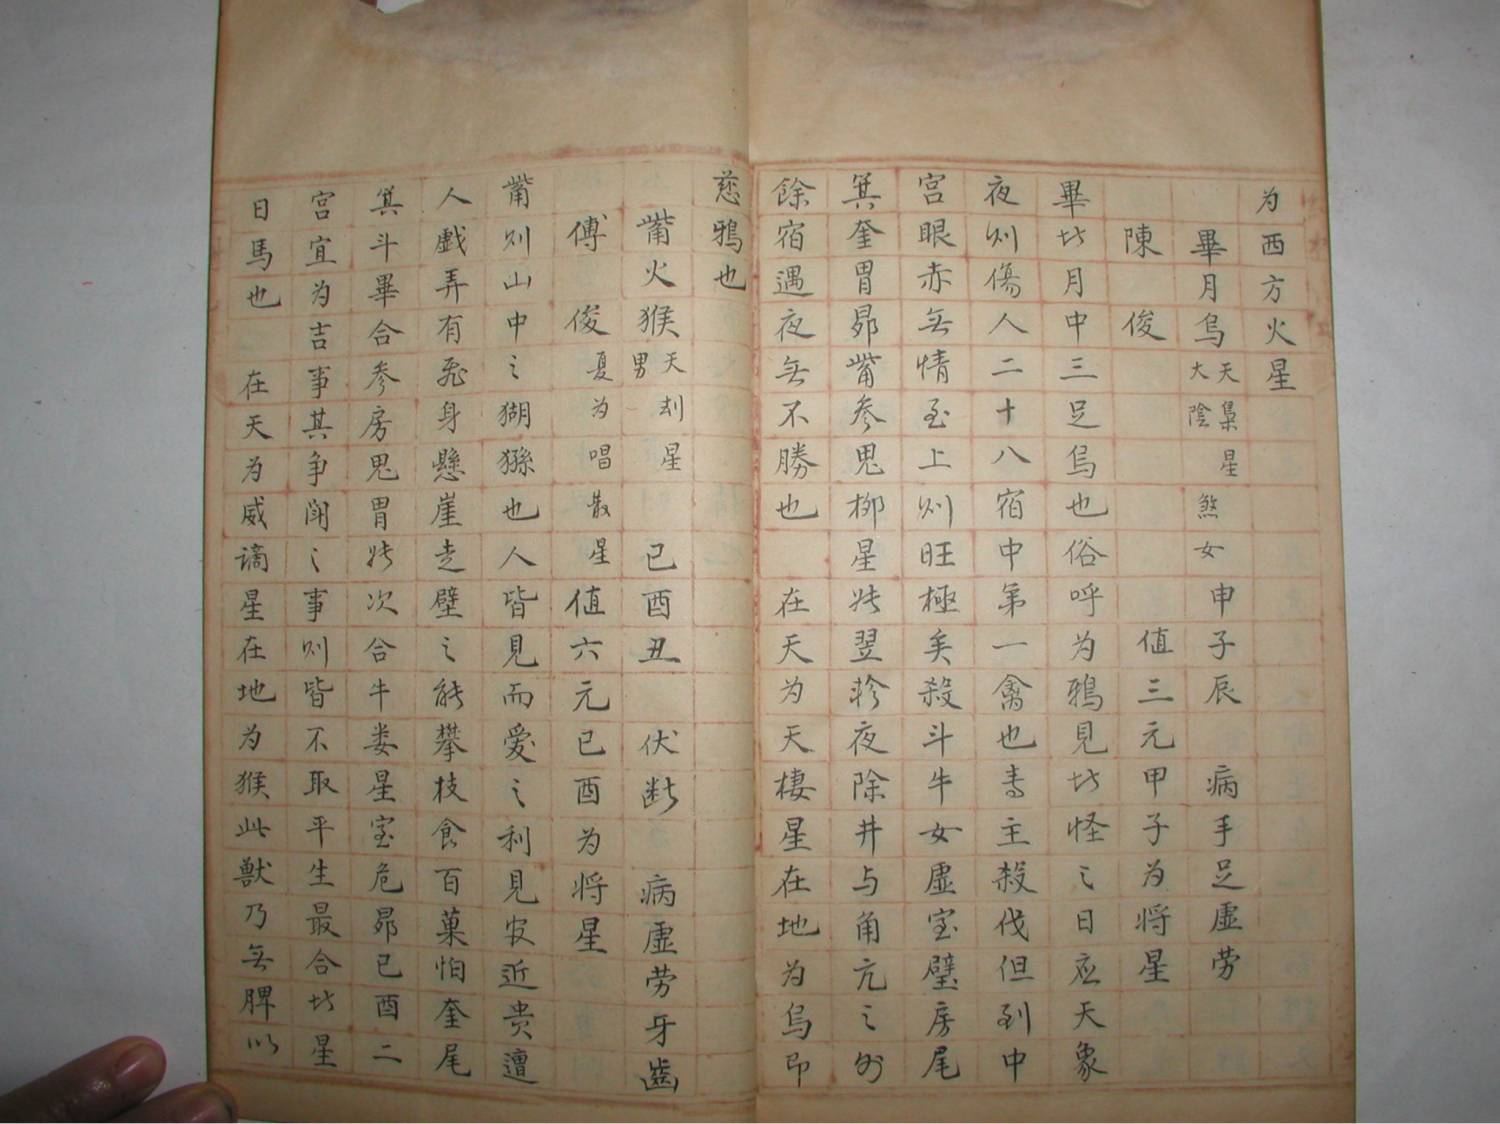 为西方火星
畢月烏天梟星煞女大陰申子辰 病手足虛劳
陳俊 值三元甲子为将星
畢坋月中三足烏也俗呼为鴉見坋怪之日应天象
夜则傷人二十八宿中第一禽也専主殺伐但到中
宫眼赤無情至上则旺極矣殺斗牛女虛室璧房尾
箕奎胃昴嘴参鬼柳星此翌軫夜除井与角亢之外
餘宿遇夜無不勝也 在天为天棲星在地为烏即
慈鴉也
嘴火猴天刦星男 已酉丑 伏断 病虛劳牙齒
傅俊夏为唱散星值六元已酉为将星
嘴则山中之猢猻也人皆見而爱之利見安近贵遭
人戲弄有飛身懸崖走壁之能攀枝食百菓怕奎尾
箕斗畢合参房鬼胃此次合牛娄星室危昴已酉二
宫宜为吉事其争闹之事则皆不取平生最合坋星
日馬也 在天为威謫星在地为猴此獸乃無脾以